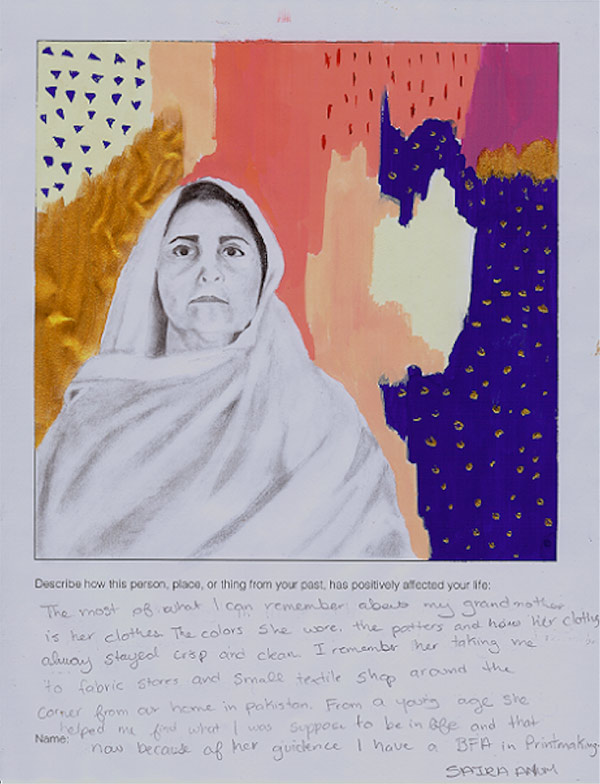 Describe how this person, place, or thing from your past, has positively affected your life:
The most of what I can remember about my grandmother
is her clothes. The colors she wore, the patters and how her clothes
always stayed crisp and clean. I remember her taking me
to fabric stores and small textile shop around the
corner from our home in pakistan. From a young age she
helped me find what I was suppose to be in life and that
Name: now because of her guidence I have a BFA in Printmaking.
SAIRA ANUM